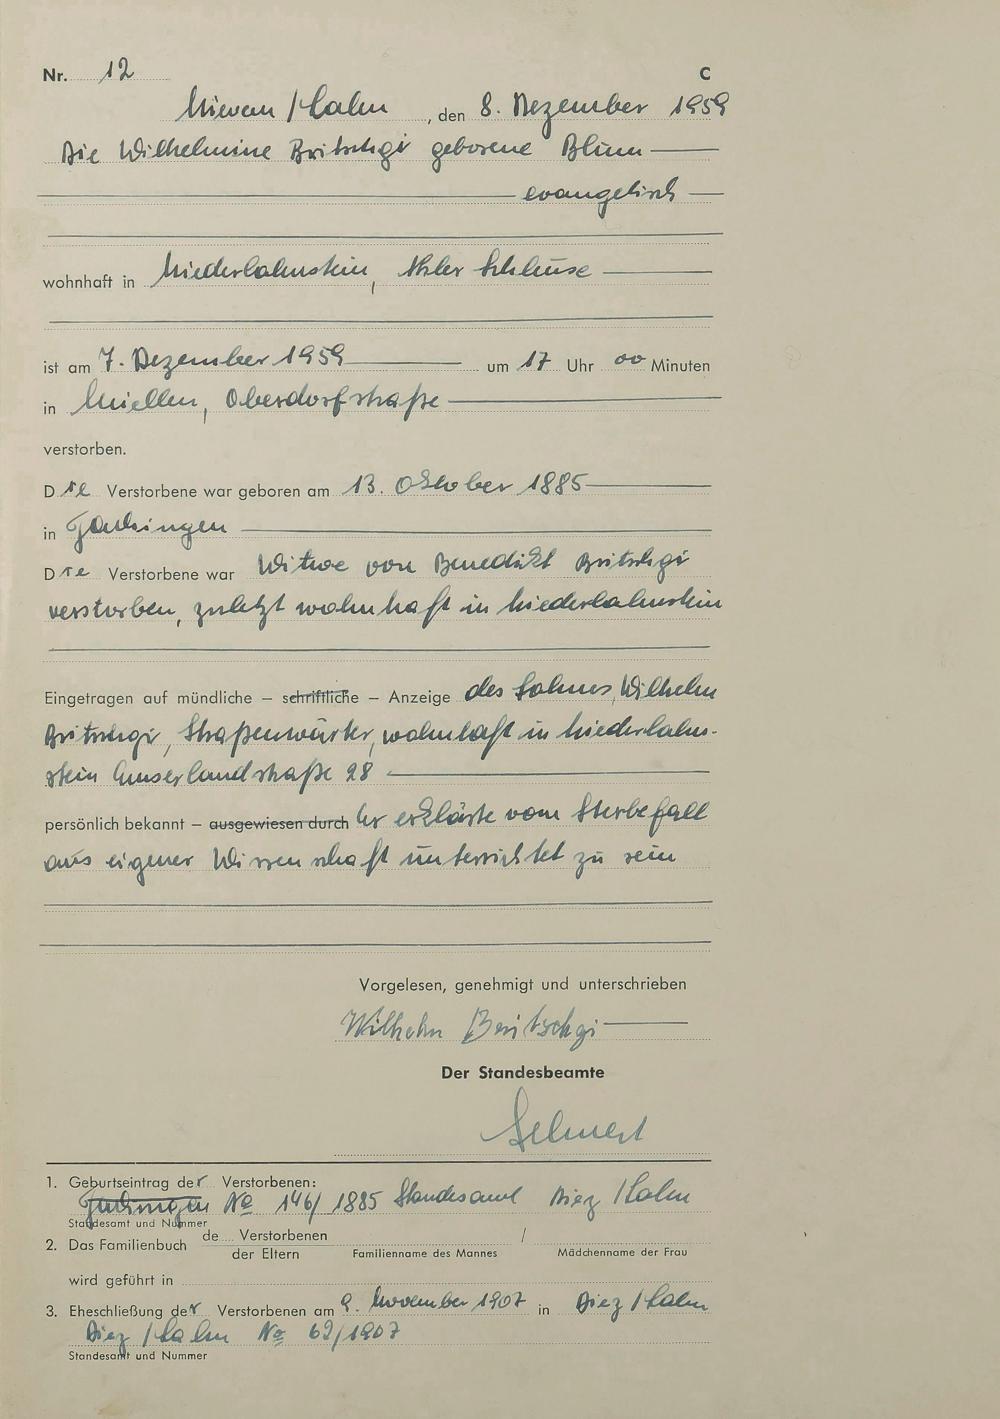 Nr. 12 C
Nievern/Lahn, den 8. Dezember 1959
Die Wilhelmine Britschgi geborene Blum
evangelisch
wohnhaft in Niederlahnstein, Ahler Schleuse
ist am 7. Dezember 1959 um 17 Uhr 00 Minuten
in Miellen, Oberdorfstraße
verstorben.
Die Verstorbene war geboren am 13. Oktober 1885
in Fachingen
Die Verstorbene war Witwe von Benedikt Britschgi
verstorben, zuletzt wohnhaft in Niederlahnstein
Eingetragen auf mündliche – schriftliche – Anzeige des Sohnes, Wilhelm
Britschgi, Straßenwärter, wohnhaft in Niederlahn-
stein Emserlandstraße 28
persönlich bekannt – ausgewiesen durch Er erklärte vom Sterbefall
aus eigener Wissenschaft unterrichtet zu sein
Vorgelesen, genehmigt und unterschrieben
Wilhelm Britschgi
Der Standesbeamte
1. Geburtseintrag der Verstorbenen:
Fachingen No 146/1885 Standesamt Diez/Lahn
Standesamt und Nummer
2. Das Familienbuch de Verstorbenen /
der Eltern Familienname des Mannes Mädchenname der Frau
wird geführt in
3. Eheschließung der Verstorbenen am 9. November 1907 in Diez/Lahn
Diez/Lahn No 62/1907
Standesamt und Nummer